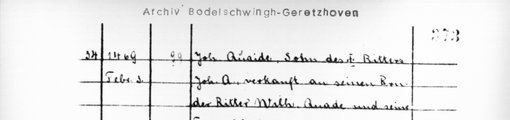 Archiv Bodelschwingh-Geretzhoven
373
34 1469 99 Joh Quaide, Sohn des † Ritters
Febr. 3. Joh. A., verkauft an seinen Bru
der Ritter Wilh. Quade und seine